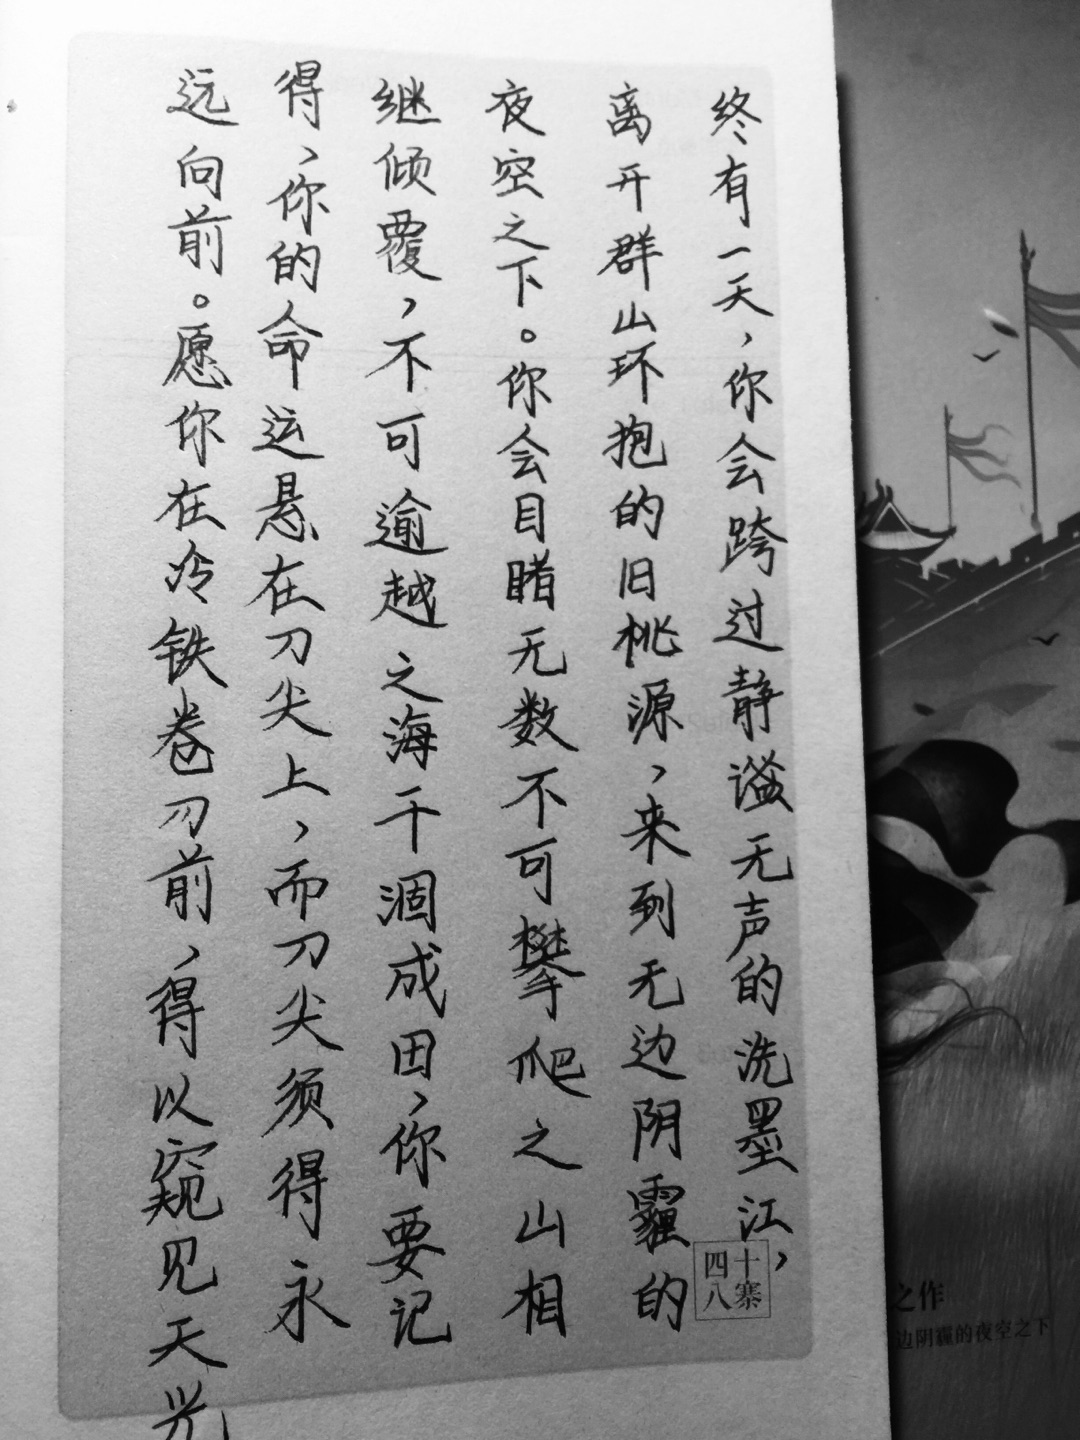 终有一天，你会跨过静谧无声的洗墨江，
离开群山环抱的旧桃源，来到无边阴霾的
夜空之下。你会目睹无数不可攀爬之山相
继倾覆，不可逾越之海干涸成田，你要记
得，你的命运悬在刀尖上，而刀尖须得永
远向前。愿你在冷铁卷刃前，得以窥见天光
四十
八寨
之作
边阴霾的夜空之下